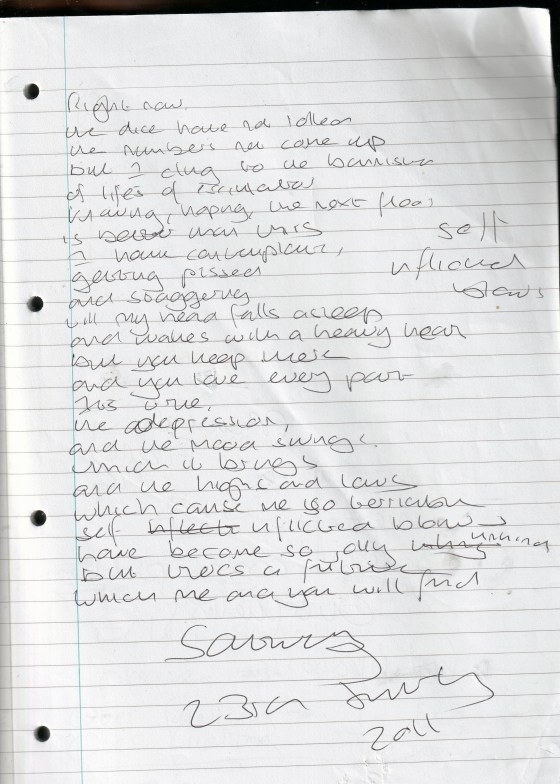 Right now
the dice have not
the numbers not come up
but I cling to the bannister
of life's
knowing, hoping, the next floor
is better than this
I have
getting pissed
and staggering
till my head falls asleep
and wakes with a heavy heart
but you keep there
and you love every part
its true,
the depression,
and the mood swings.
which it brings
and the highs and lows
which cause me so
self inflicted blows
have become so
but theres a future
which me and you will find
self
inflicted
blows
Saturday
23rd July
2011